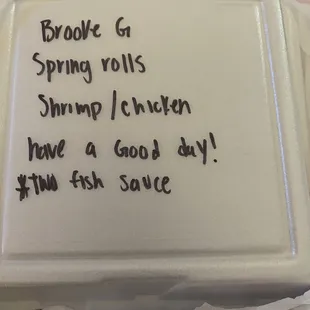 Brooke G
Spring rolls
Shrimp/chicken
have a Good day!
*TWO fish sauce